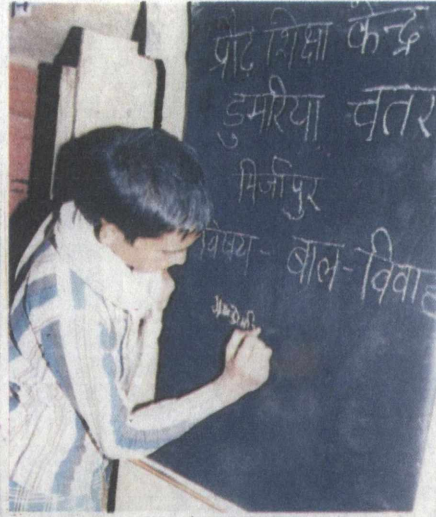 प्रौढ़ शिक्षा केन्द्र
डुमरिया चतर
मिर्जापुर
विषय - बाल-विवाह